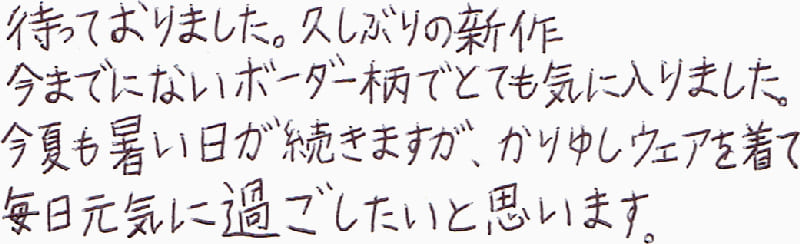 待っておりました。久しぶりの新作
今までにないボーダー柄でとても気に入りました。
今夏も暑い日が続きますが、かりゆしウェアを着て
毎日元気に過ごしたいと思います。